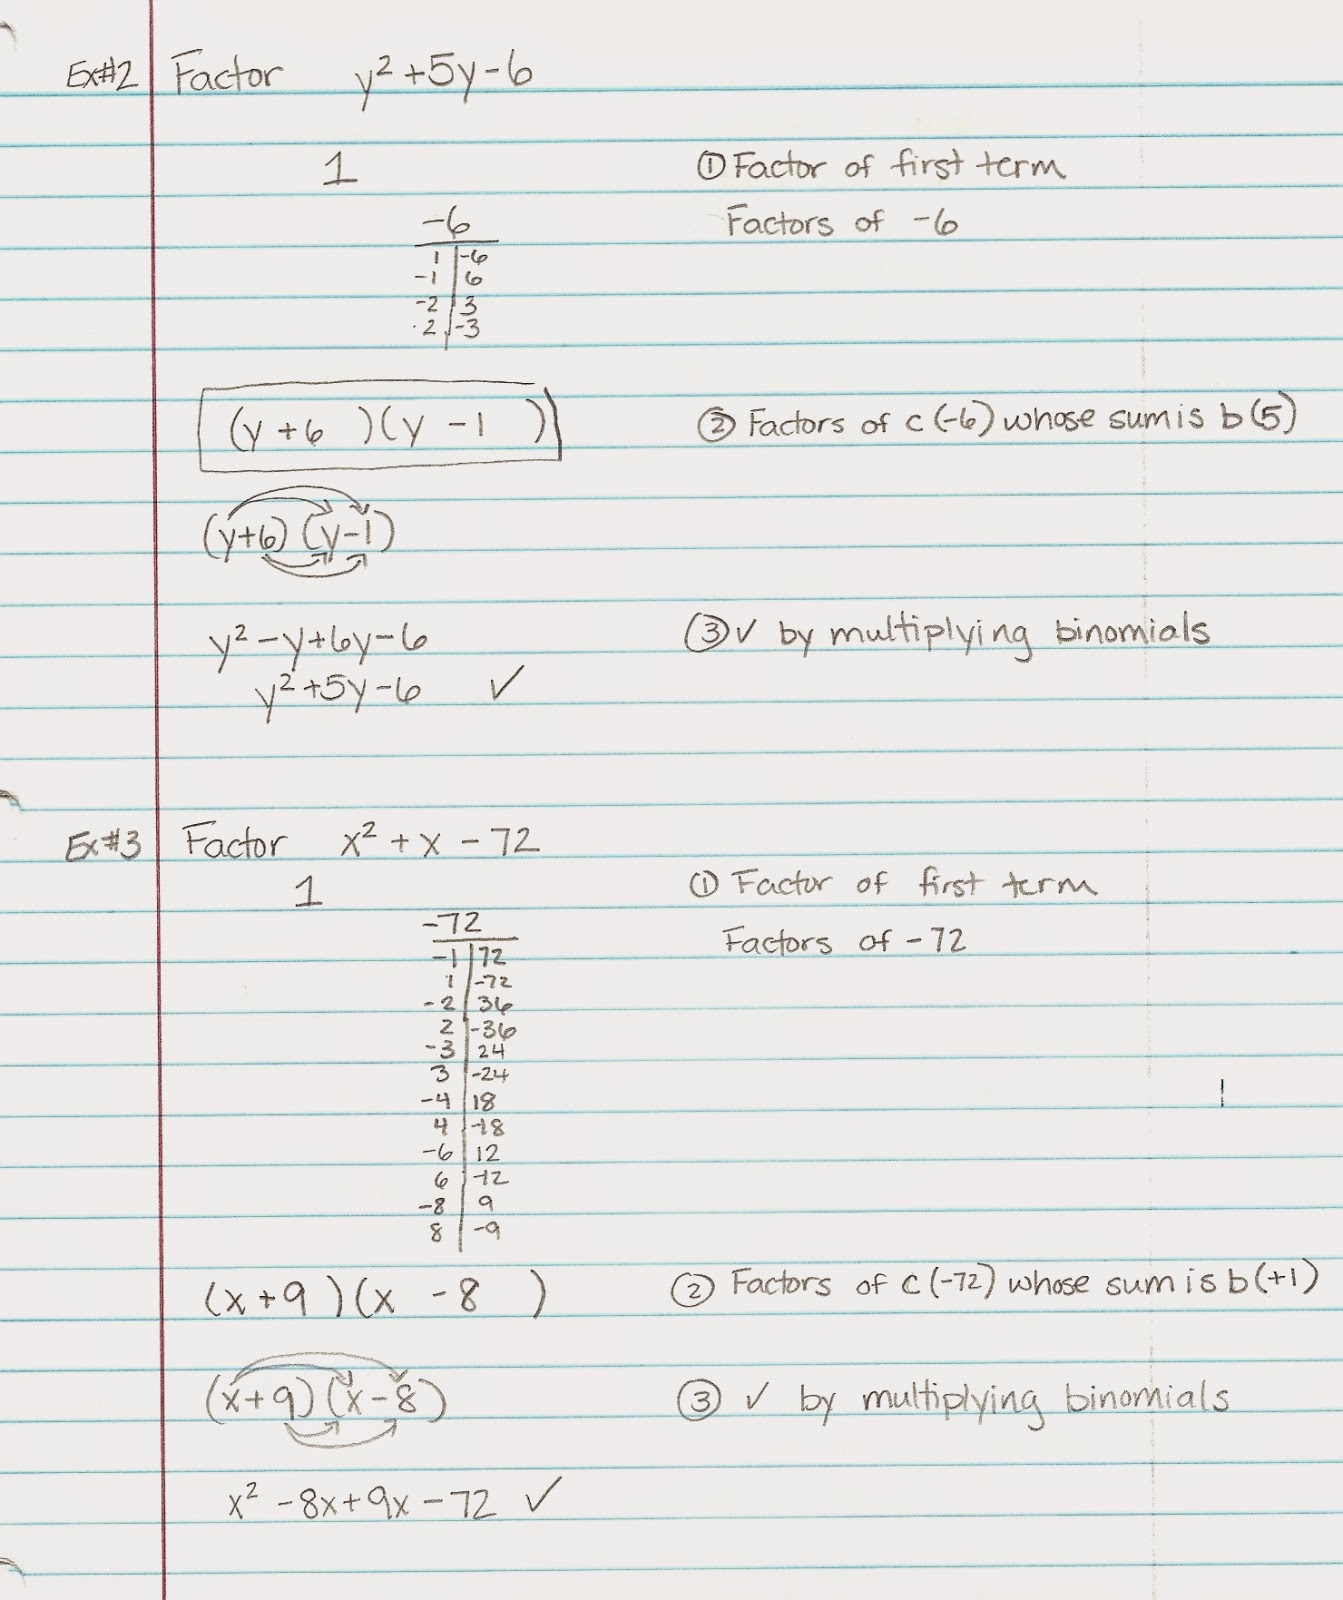 Ex#2 Factor y² + 5y - 6
1 ① Factor of first term
-6 Factors of -6
1 | -6
-1 | 6
-2 | 3
2 | -3
(y + 6 )(y - 1 ) ② Factors of c (-6) whose sum is b (5)
(y+6)(y-1)
y² - y + 6y - 6 ③ ✓ by multiplying binomials
y² + 5y - 6 ✓
Ex#3 Factor x² + x - 72
1 ① Factor of first term
-72 Factors of -72
-1 | 72
1 | -72
-2 | 36
2 | -36
-3 | 24
3 | -24
-4 | 18
4 | -18
-6 | 12
6 | -12
-8 | 9
8 | -9
(x + 9 )(x - 8 ) ② Factors of c (-72) whose sum is b (+1)
(x + 9)(x - 8) ③ ✓ by multiplying binomials
x² - 8x + 9x - 72 ✓